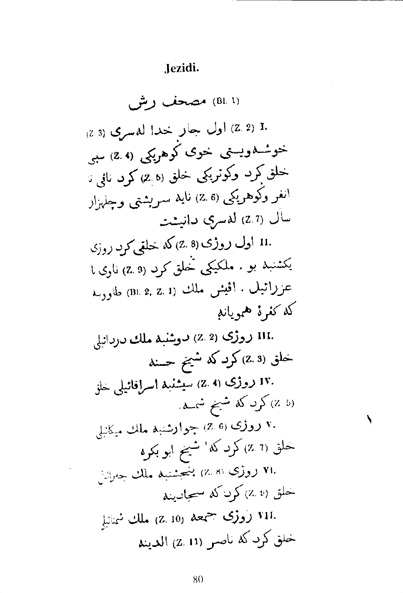 Jezidi.
(Bl. 1) مصحف رش
I. (Z. 2) اول جار خدا له‌سری (Z. 3)
خوشه‌ویستی خوی گوهریکی (Z. 4) سپی
خلق کرد وکوتریکی خلق (Z. 5) کرد ناڤی نا
انفر وگوهریکی (Z. 6) نایه سرپشتی وچلهزار
سال (Z. 7) له‌سری دانیشت
II. اول روژی (Z. 8) که خلقی کرد روژی
یکشنبه بو . ملکیکی خلق کرد (Z. 9) ناوی نا
عزرائیل . اڤیش ملك (Bl. 2, Z. 1) طاووسه
که گفرهٔ همویانه
III. روژی (Z. 2) دوشنبه ملك دردائیلی
خلق (Z. 3) کرد که شیخ حسنه
IV. روژی (Z. 4) سیشنبه اسرافائیلی خلق
(Z. 5) کرد که شیخ شمسه.
V. روژی (Z. 6) چوارشنبه ملك میکائیلی
خلق (Z. 7) کرد که شیخ ابو بکره
VI. روژی (Z. 8) پنجشنبه ملك جبرائیلی
خلق (Z. 9) کرد که سجادینه
VII. روژی جمعه (Z. 10) ملك شمنائیلی
خلق کرد که ناصر (Z. 11) الدینه
80